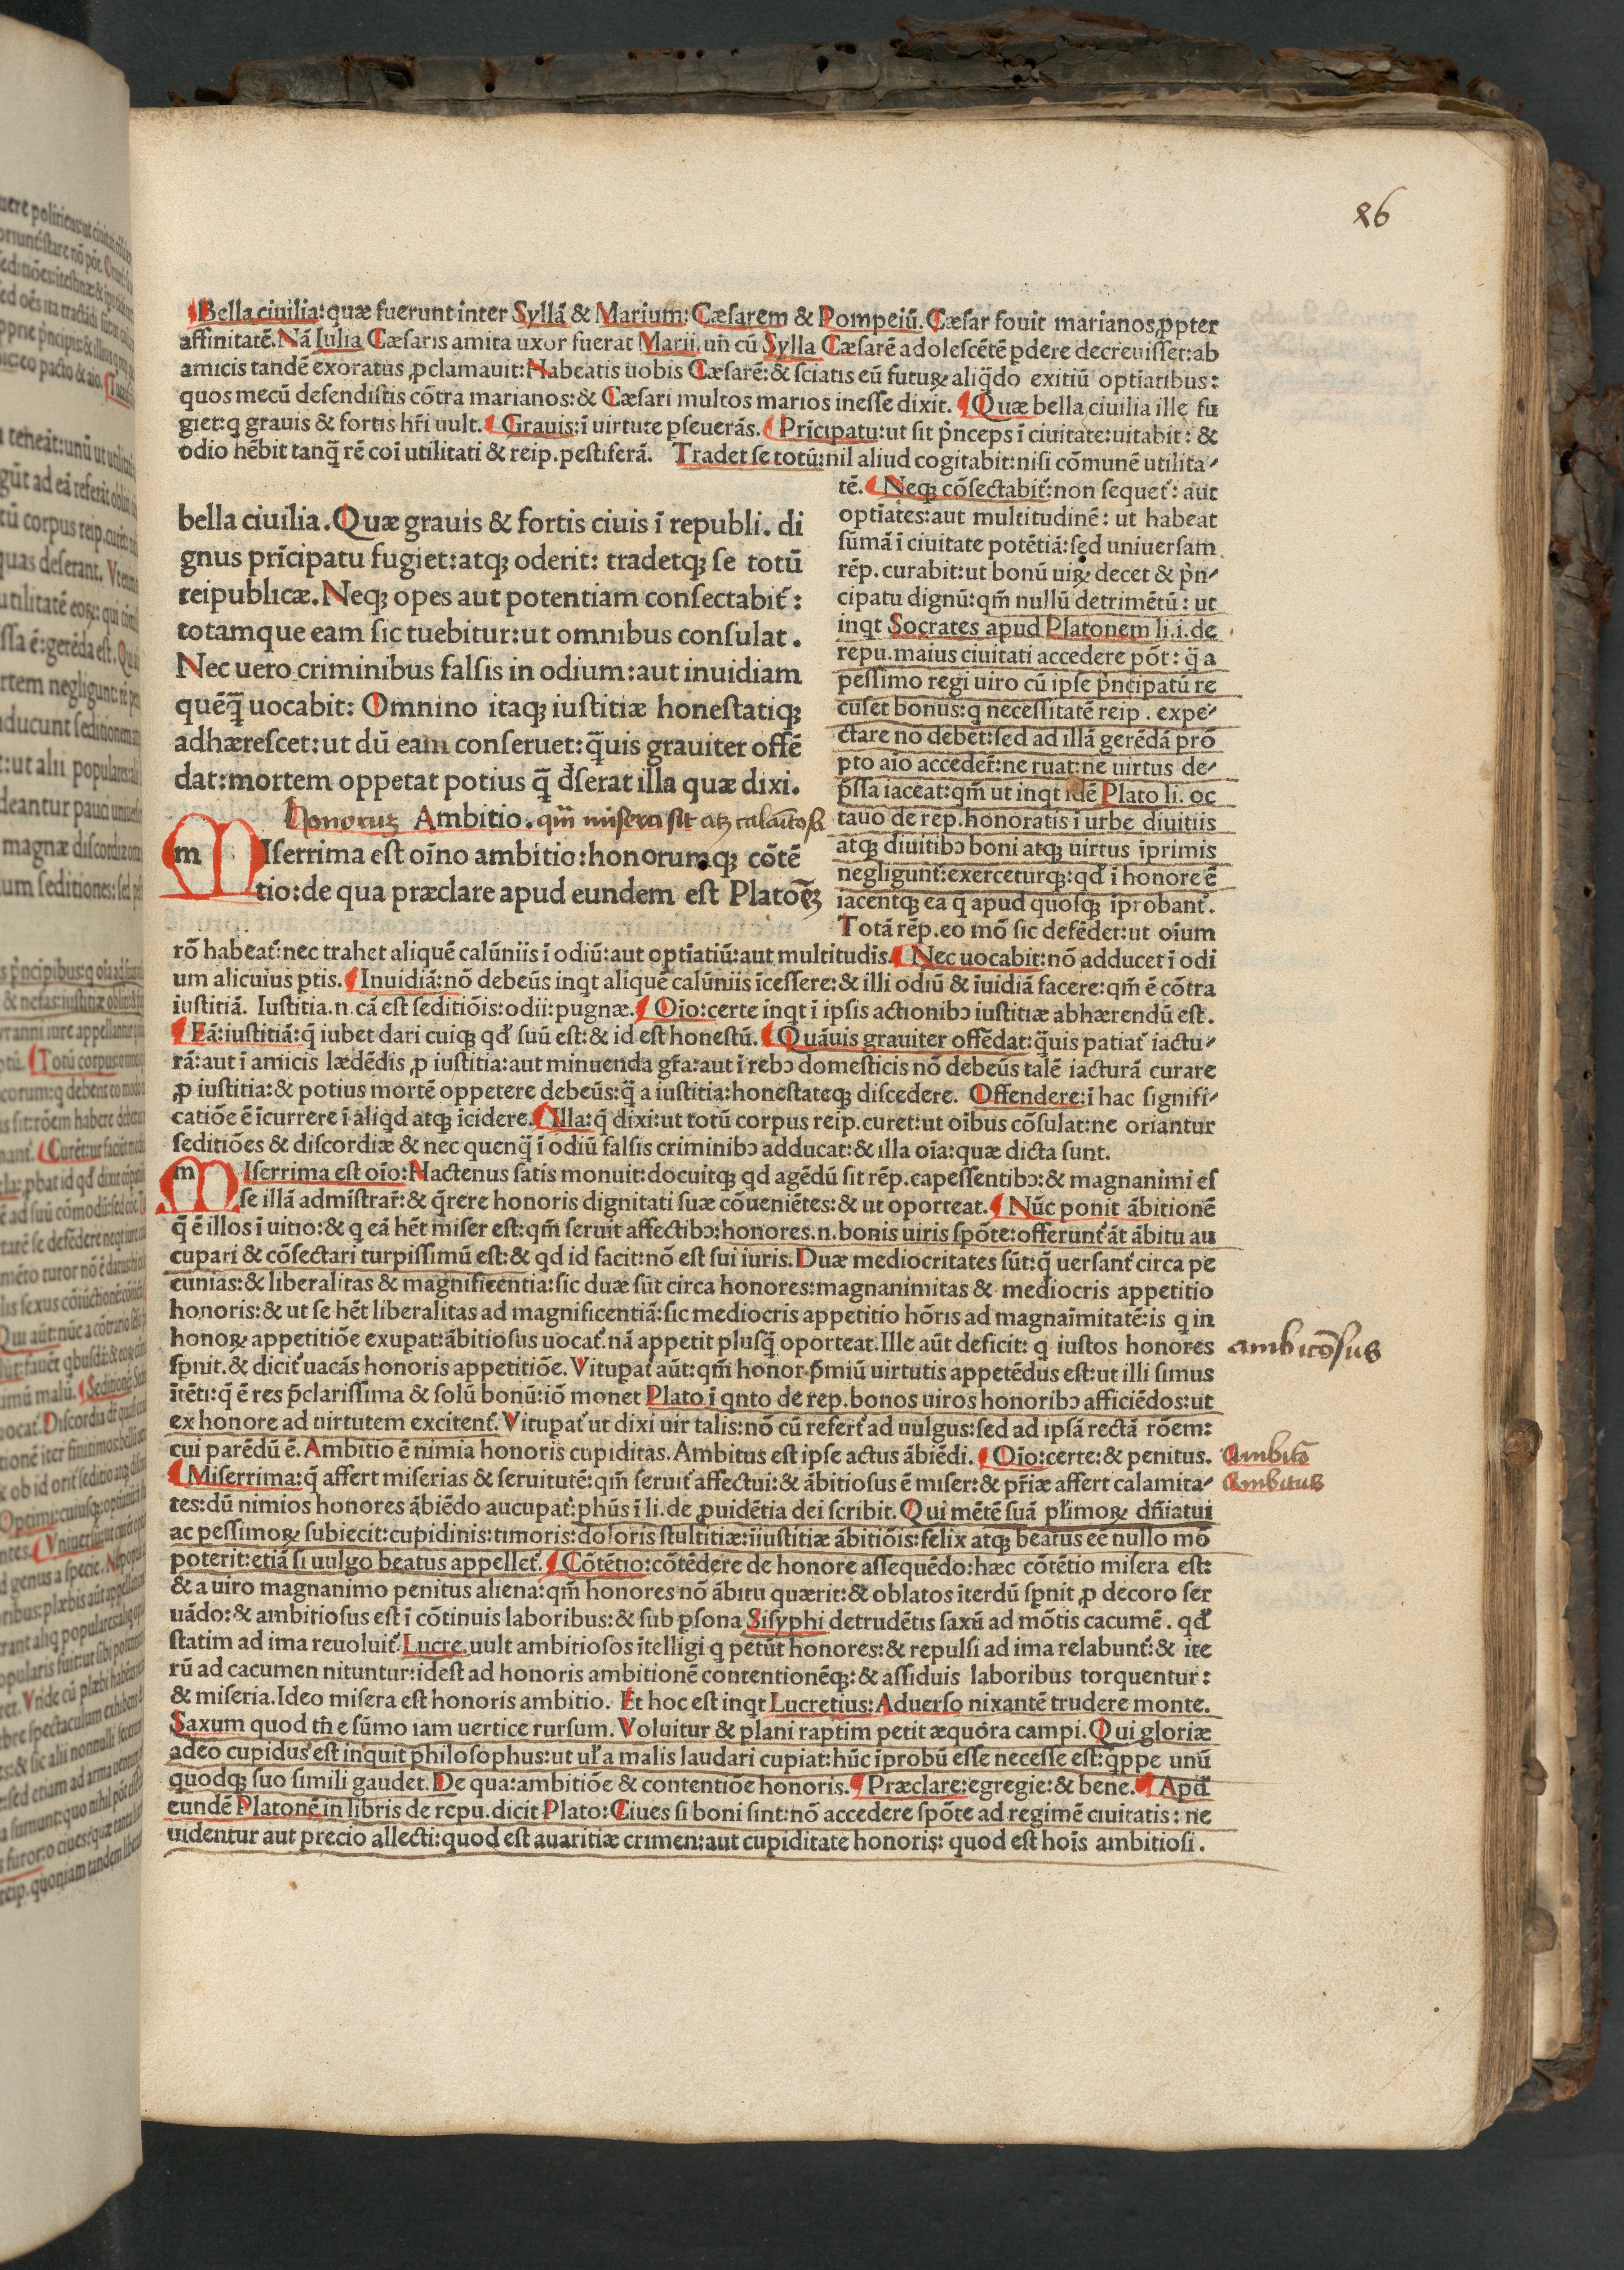 86
Bella ciuilia: quæ fuerunt inter Syllā & Marium: Cæsarem & Pompeiū. Cæsar fouit marianos ꝓpter
affinitatē. Nā Iulia Cæsaris amita uxor fuerat Marii. uñ cū Sylla Cæsarē adolescētē ꝑdere decreuisset: ab
amicis tandē exoratus ꝓclamauit: Habeatis uobis Cæsarē: & sciatis eū futuꝝ aliq̄do exitiū optīatibus:
quos mecū defendistis cōtra marianos: & Cæsari multos marios inesse dixit. Quæ bella ciuilia ille fu
giet: q grauis & fortis hr̄i uult. Grauis: ī uirtute ꝑseuerās. Prīcipatu: ut sit p̄nceps ī ciuitate: uitabit: &
odio hēbit tanq̄ rē coī utilitati & reip. pestiferā. Tradet se totū: nil aliud cogitabit: nisi cōmunē utilita⸗
bella ciuilia. Quæ grauis & fortis ciuis ī republi. di
gnus prīcipatu fugiet: atqꝫ oderit: tradetqꝫ se totū
reipublicæ. Neqꝫ opes aut potentiam consectabit᷑:
totamque eam sic tuebitur: ut omnibus consulat.
Nec uero criminibus falsis in odium: aut inuidiam
quēq̄ uocabit: Omnino itaqꝫ iustitiæ honestatiqꝫ
adhærescet: ut dū eam conseruet: q̄uis grauiter offē
dat: mortem oppetat potius q̄ d̄serat illa quæ dixi.
Honorus Ambitio. qm̄ misera sit atqꝫ calamitosa
m Iserrima est oīno ambitio: honorumqꝫ cōtē
tio: de qua præclare apud eundem est Platoēꝫ
tē. Neqꝫ cōsectabit᷑: non sequet᷑: aut
optīates: aut multitudinē: ut habeat
sūmā ī ciuitate potētiā: sed uniuersam
rēp. curabit: ut bonū uiꝝ decet & p̄n⸗
cipatu dignū: qm̄ nullū detrimētū: ut
inqt Socrates apud Platonem li. i. de
repu. maius ciuitati accedere pōt: q̄ a
pessimo regi uiro cū ipse p̄ncipatū re
cuset bonus: q necessitatē reip. expe⸗
ctare nō debet: sed ad illā gerēdā pro
pto aīo accedet᷑: ne ruat: ne uirtus de⸗
p̄ssa iaceat: qm̄ ut inqt idē Plato li. oc
tauo de rep. honoratis ī urbe diuitiis
atqꝫ diuitibꝰ boni atqꝫ uirtus īprimis
negligunt᷑: exerceturqꝫ: qd̄ ī honore ē
iacentqꝫ ea q̄ apud quosqꝫ īprobant᷑.
Totā rēp. eo mō sic defēdet: ut oīum
rō habeat᷑: nec trahet aliquē calūniis ī odiū: aut optīatiū: aut multitudis. Nec uocabit: nō adducet ī odi
um alicuius ꝑtis. Inuidiā: nō debeūs inqt aliquē calūniis īcessere: & illi odiū & īuidiā facere: qm̄ ē cōtra
iustitiā. Iustitia. n. cā est seditiōis: odii: pugnæ. Oīo: certe inqt ī ipsis actionibꝰ iustitiæ abhærendū est.
Eā: iustitiā: q̄ iubet dari cuiqꝫ qd̄ suū est: & id est honestū. Quāuis grauiter offēdat: q̄uis patiat᷑ iactu⸗
rā: aut ī amicis lædēdis ꝓ iustitia: aut minuenda gr̄a: aut ī rebꝰ domesticis nō debeūs talē iacturā curare
ꝓ iustitia: & potius mortē oppetere debeūs: q̄ a iustitia: honestateqꝫ discedere. Offendere: ī hac signifi⸗
catiōe ē īcurrere ī aliqd atqꝫ īcidere. Illa: q̄ dixi: ut totū corpus reip. curet: ut oībus cōsulat: ne oriantur
seditiōes & discordiæ & nec quenq̄ ī odiū falsis criminibꝰ adducat: & illa oīa: quæ dicta sunt.
m Iserrima est oīo: Hactenus satis monuit: docuitqꝫ qd agēdū sit rēp. capessentibꝰ: & magnanimi es
se illā admīstrar᷑: & q̄rere honoris dignitati suæ cōueniētes: & ut oporteat. Nūc ponit ābitionē
q̄ ē illos ī uitio: & q eā hēt miser est: qm̄ seruit affectibꝰ: honores. n. bonis uiris spōte: offerunt᷑ āt ābitu au
cupari & cōsectari turpissimū est: & qd id facit: nō est sui iuris. Duæ mediocritates sūt: q̄ uersant᷑ circa pe
cunias: & liberalitas & magnificentia: sic duæ sūt circa honores: magnanimitas & mediocris appetitio
honoris: & ut se hēt liberalitas ad magnificentiā: sic mediocris appetitio hōris ad magnaīmitatē: is q in
honoꝝ appetitiōe exuꝑat: ābitiosus uocat᷑ nā appetit plusq̄ oporteat. Ille aūt deficit: q iustos honores
sp̄nit. & dicit᷑ uacās honoris appetitiōe. Vitupat᷑ aūt: qm̄ honor p̄miū uirtutis appetēdus est: ut illi simus
ītēti: q̄ ē res p̄clarissima & solū bonū: iō monet Plato ī qnto de rep. bonos uiros honoribꝰ afficiēdos: ut
ex honore ad uirtutem excitent᷑. Vitupat᷑ ut dixi uir talis: nō cū refert᷑ ad uulgus: sed ad ipsā rectā rōem:
cui parēdū ē. Ambitio ē nimia honoris cupiditas. Ambitus est ipse actus ābiēdi. Oīo: certe: & penitus.
Miserrima: q̄ affert miserias & seruitutē: qm̄ seruit᷑ affectui: & ābitiosus ē miser: & pr̄iæ affert calamita⸗
tes: dū nimios honores ābiēdo aucupat᷑: phūs ī li. de ꝓuidētia dei scribit. Qui mētē suā pl̄imoꝝ dn̄iatui
ac pessimoꝝ subiecit: cupidinis: timoris: doloris stultitiæ: iīustitiæ ābitiōis: felix atqꝫ beatus eē nullo mō
poterit: etiā si uulgo beatus appellet᷑. Cōtētio: cōtēdere de honore assequēdo: hæc cōtētio misera est:
& a uiro magnanimo penitus aliena: qm̄ honores nō ābitu quærit: & oblatos īterdū sp̄nit ꝓ decoro ser
uādo: & ambitiosus est ī cōtinuis laboribus: & sub ꝑsona Sisyphi detrudētis saxū ad mōtis cacumē. qd̄
statim ad ima reuoluit᷑. Lucre. uult ambitiosos ītelligi q petūt honores: & repulsi ad ima relabunt᷑: & ite
rū ad cacumen nituntur: idest ad honoris ambitionē contentionēqꝫ: & assiduis laboribus torquentur:
& miseria. Ideo misera est honoris ambitio. Et hoc est inqt Lucretius: Aduerso nixantē trudere monte.
Saxum quod tñ e sūmo iam uertice rursum. Voluitur & plani raptim petit æquora campi. Qui gloriæ
adeo cupidus est inquit philosophus: ut ul̄a malis laudari cupiat: hūc īprobū esse necesse est: q̄ppe unū
quodqꝫ suo simili gaudet. De qua: ambitiōe & contentiōe honoris. Præclare: egregie: & bene. Apd̄
eundē Platonē in libris de repu. dicit Plato: Ciues si boni sint: nō accedere spōte ad regimē ciuitatis: ne
uidentur aut precio allecti: quod est auaritiæ crimen: aut cupiditate honoris: quod est hoīs ambitiosi.
ambitiōsus
Ambitō
Ambitus